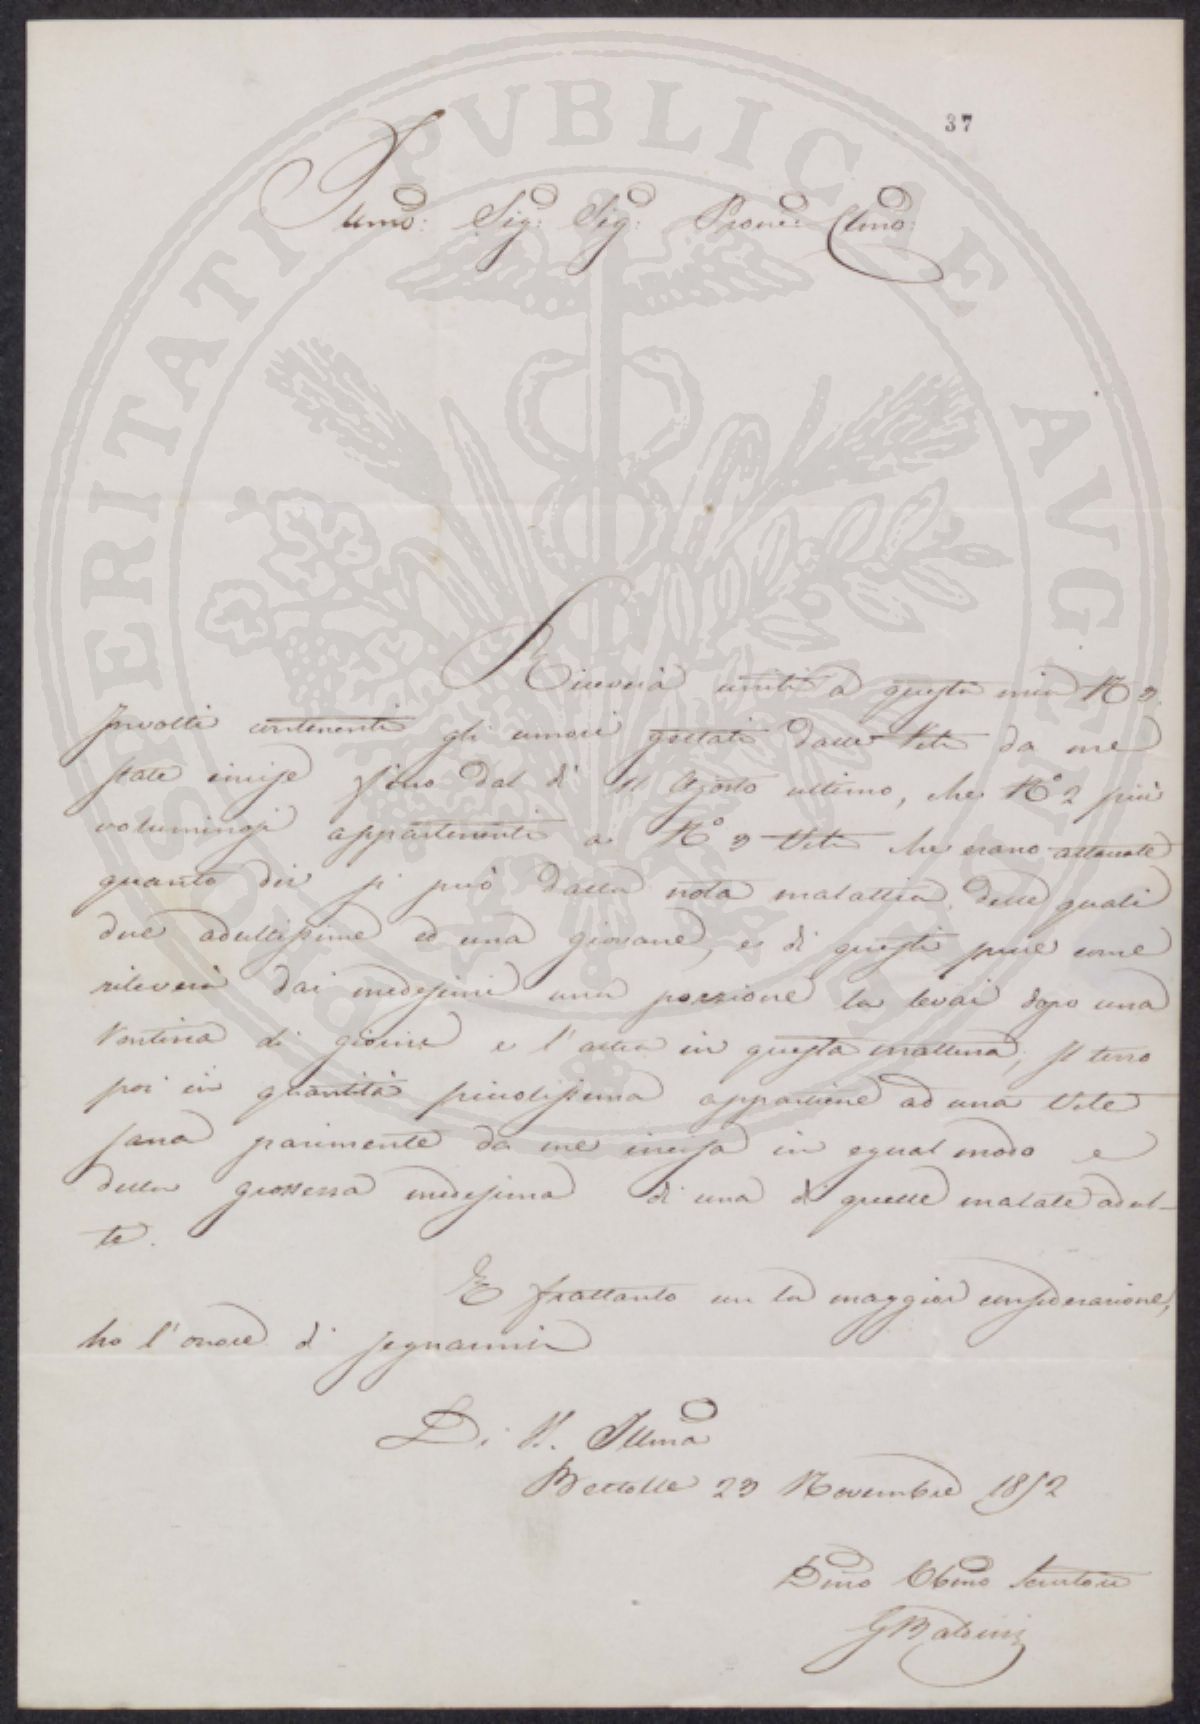 37
Illmo: Sig: Sig: Prone: Clmo:
Riceverà uniti a questa mia N° 3
Involti contenenti gli umori gettati dalle Viti da me
state incise fino dal dì 11 Agosto ultimo, che N° 2 più
voluminosi appartenenti a N° 3 Viti che erano attaccate
quanto dir si può dalla nota malattia, delle quali
due adultissime ed una giovane, es di questi pure come
rileverà dai medesimi una porzione la levai dopo una
Ventina di giorni e l'altra in questa mattina; Il terzo
poi in quantità piccolissima appartiene ad una Vite
sana parimente da me incisa in egual modo e
della grossezza medesima di una di quelle malate adul-
te.
E frattanto con la maggior considerazione,
ho l'onore di segnarmi
Di V. Illma
Bettolle 23 Novembre 1852
Dmo Obmo Servitore
G Baldini
PROSPERITATI PVBLICAE AVGENDAE